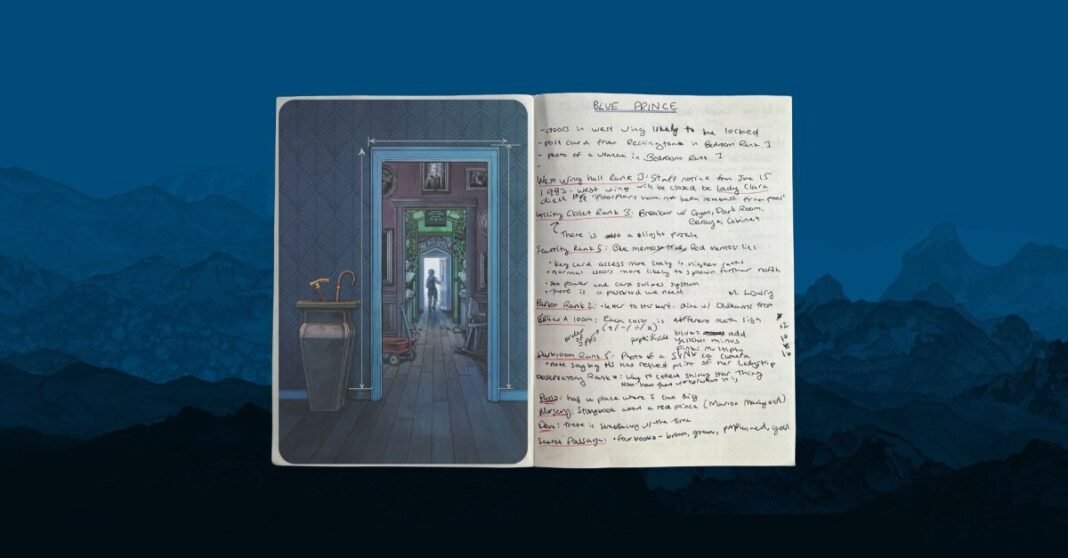 BLUE PRINCE
- doors in west wing likely to be locked
- post card from in Bedroom Rank 1
- photo of a woman in Bedroom Rank 1
-
West Wing hall Rank 3: Staff notice from June 15
1983: west wing will be closed be Lady Clara
died "floorplans have not been removed from pool"
Closet Rank 3: Breaker w/ Gym, Dark Room,
Garage, Cabinet
There is a light puzzle
Security Rank 5: Blue memos true Red memos lies
• key card access more likely in higher ranks
• normal doors more likely to spawn further north
• power and card swipes system
• there is a password we need
Parlor Rank 2: letter to Herbert, dine w/ from
Billiard room: Each color is different math sign
(+/-/÷/x)
blue: add
yellow: minus
pink: multiply
Darkroom Rank 5: Photo of a camera
• note saying HS has request print of her Ladyship
Observatory Rank : Way to collect shiny star thing
Patio: has a place where I can dig
Nursery: Storybook about a red prince (Marion Marigold)
Den: There is something w/ the time
Secret Passage: • four books - brown, green,